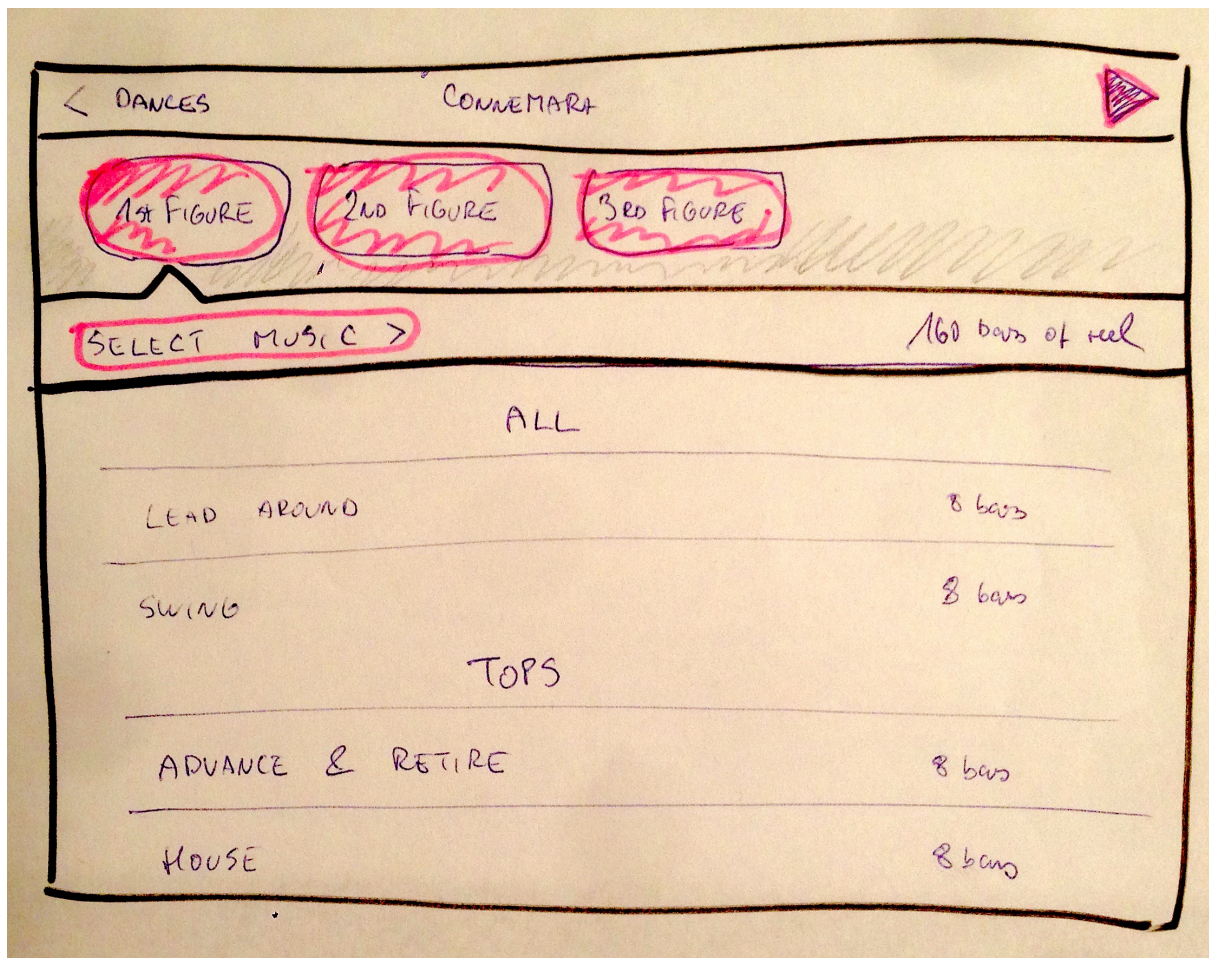 < DANCES CONNEMARA
1st FIGURE 2ND FIGURE 3RD FIGURE
SELECT MUSIC > 160 bars of reel
ALL
LEAD AROUND 8 bars
SWING 8 bars
TOPS
ADVANCE & RETIRE 8 bars
HOUSE 8 bars